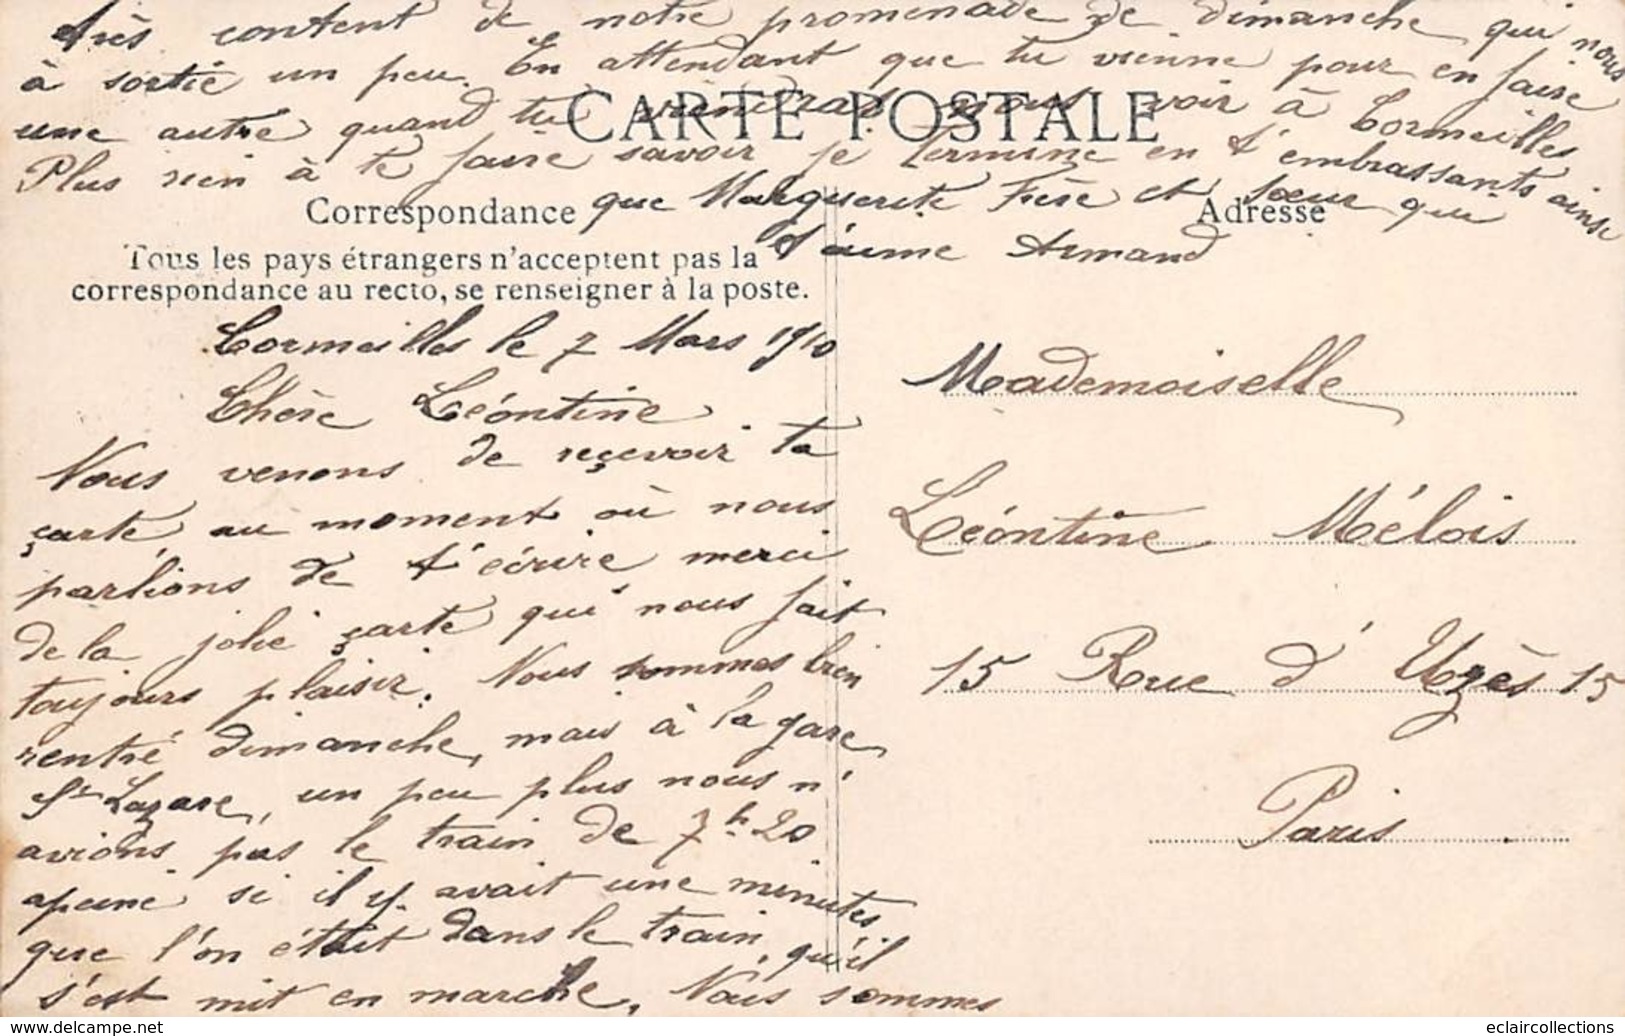 très content de notre promenade de dimanche qui nous
à sortie un peu. En attendant que tu vienne pour en faire
une autre quand tu viendras nous voir à Cormeilles
Plus rien à te faire savoir je termine en t'embrassants ainsi
que Marguerite Frère et sœur qui
t'aime Armand
CARTE POSTALE
Correspondance
Tous les pays étrangers n'acceptent pas la
correspondance au recto, se renseigner à la poste.
Cormeilles le 7 Mars 1910
Chère Léontine
Nous venons de reçevoir ta
çarte au moment où nous
parlions de t'écrire merci
de la jolie çarte qui nous fait
toujours plaisir. Nous sommes bien
rentré dimanche, mais à la gare
St Lazare, un peu plus nous n'
avions pas le train de 7h20
apeine si il y avait une minutes
que l'on était dans le train, qu'il
s'est mit en marche, Nous sommes
Adresse
Mademoiselle
Léontine Mélois
15 Rue d'Uzès 15
Paris
eclaircollections